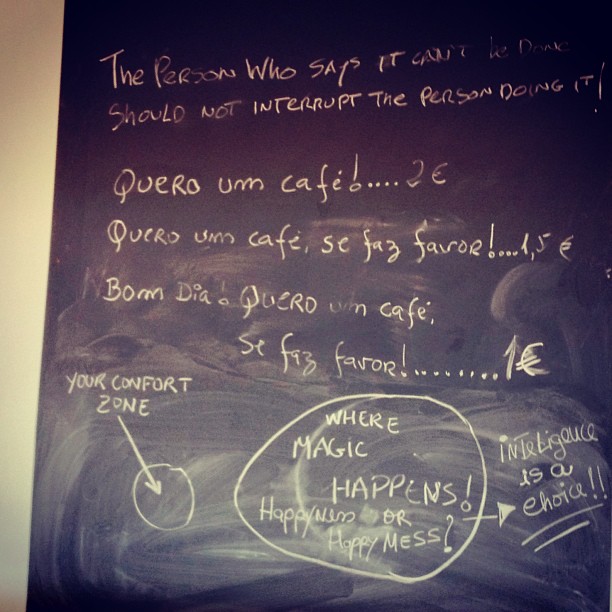 The Person Who says it can't be done
should not interrupt the person doing it!
Quero um café!....2€
Quero um café, se faz favor!...1,5 €
Bom Dia! Quero um café,
se faz favor!.........1€
YOUR CONFORT
ZONE
WHERE
MAGIC
HAPPENS!
HappyNess OR
Happy MESS?
inteligence
is a
choice!!